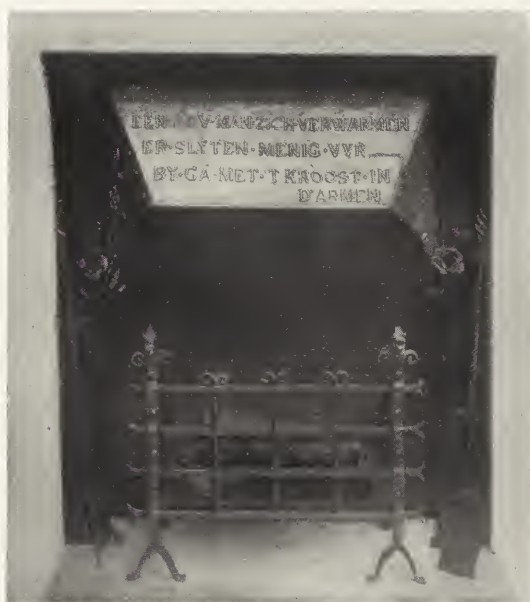 EEN · V · MAN · ZICH · VERWARMEN
ER · SLYTEN · MENIG · VYR
BY · GÂ · MET · T KROOST · IN
D'ARMEN